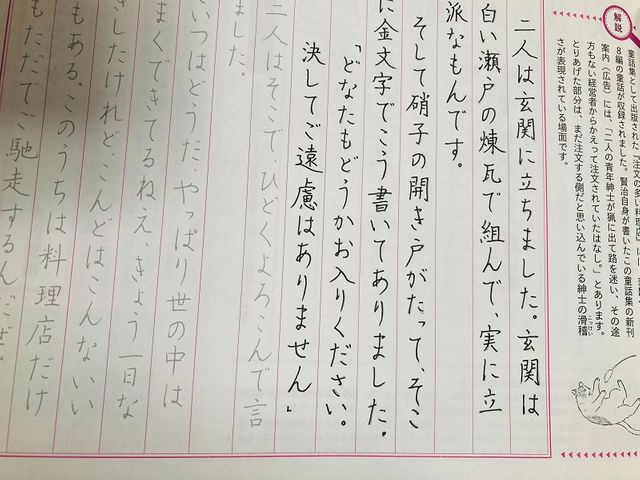 解説
童話集として出版された『注文の多い料理店』には、
8編の童話が収録されました。賢治自身が書いたこの童話集の新刊
案内（広告）には、「二人の青年紳士が猟に出て路を迷い、その途
方もない経営者からかえって注文されていたはなし。」とあります。
とりあげた部分は、まだ注文する側だと思い込んでいる紳士の滑稽
こっけい
さが表現されている場面です。
二人は玄関に立ちました。玄関は
白い瀬戸の煉瓦で組んで、実に立
派なもんです。
そして硝子の開き戸がたって、そこ
に金文字でこう書いてありました。
「どなたもどうかお入りください。
決してご遠慮はありません」
二人はそこで、ひどくよろこんで言
ました。
いつはどうだ、やっぱり世の中は
まくできてるねえ、きょう一日な
きしたけれど、こんどはこんないい
もある。このうちは料理店だけ
もただでご馳走するんだぜ。